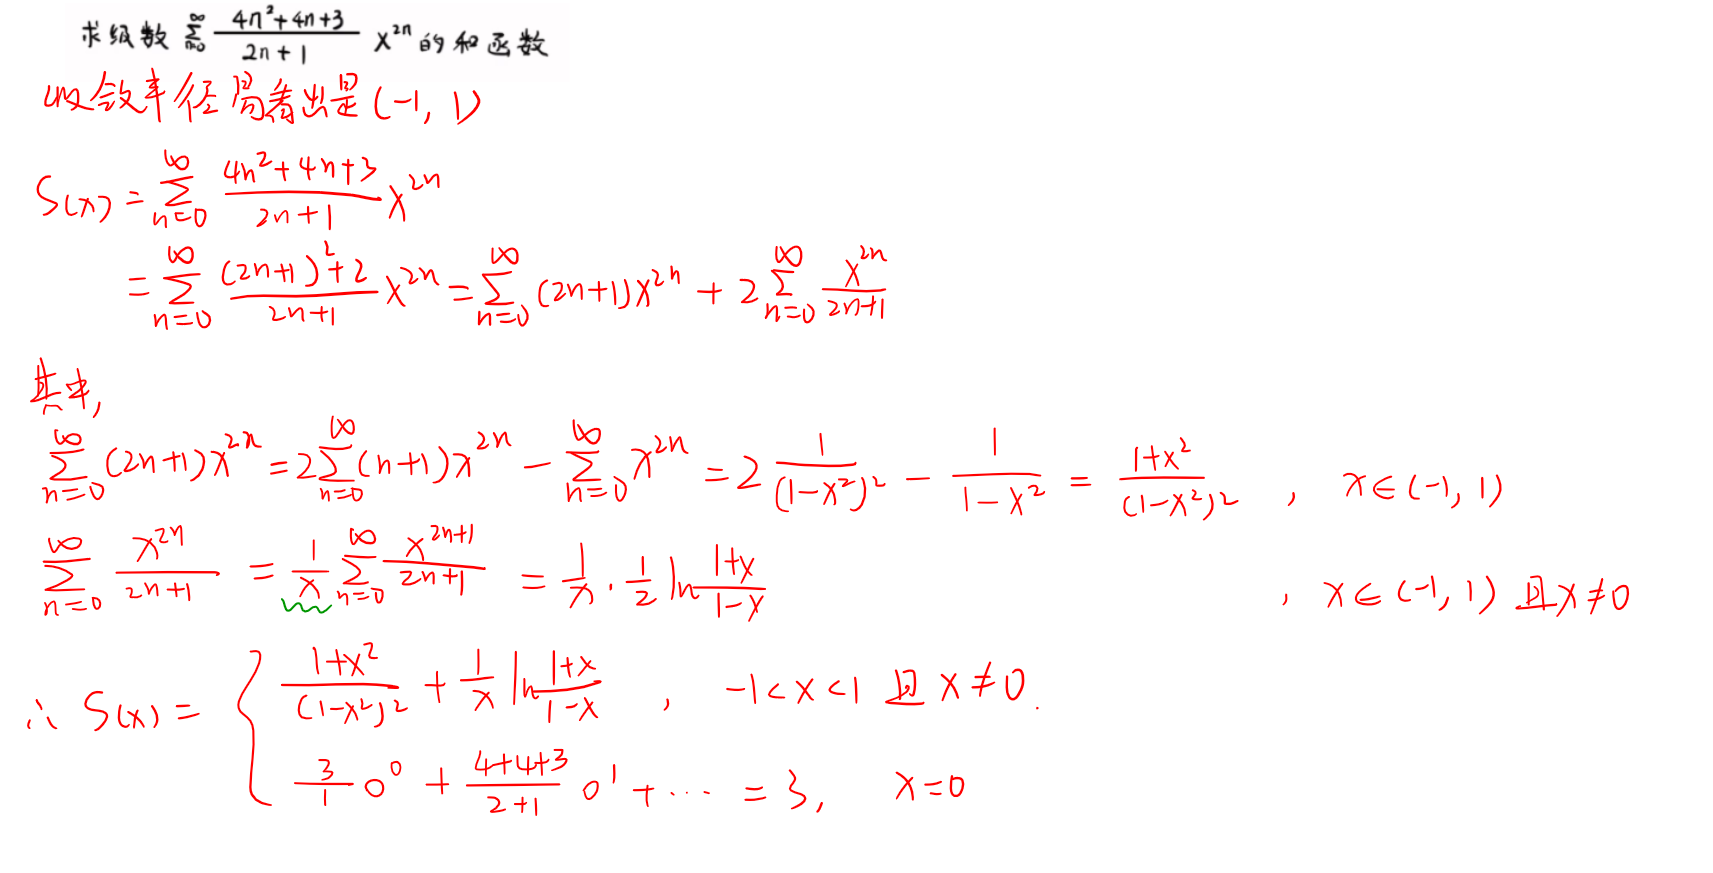 求级数 ∑_{n=0}^{∞} (4n²+4n+3)/(2n+1) x^{2n} 的和函数
收敛半径易看出是(-1, 1)
S(x) = ∑_{n=0}^{∞} (4n²+4n+3)/(2n+1) x^{2n}
= ∑_{n=0}^{∞} ((2n+1)²+2)/(2n+1) x^{2n} = ∑_{n=0}^{∞} (2n+1)x^{2n} + 2∑_{n=0}^{∞} x^{2n}/(2n+1)
其中,
∑_{n=0}^{∞} (2n+1)x^{2n} = 2∑_{n=0}^{∞} (n+1)x^{2n} - ∑_{n=0}^{∞} x^{2n} = 2 1/(1-x²)² - 1/(1-x²) = (1+x²)/(1-x²)² , x∈(-1, 1)
∑_{n=0}^{∞} x^{2n}/(2n+1) = 1/x ∑_{n=0}^{∞} x^{2n+1}/(2n+1) = 1/x · 1/2 ln (1+x)/(1-x) , x∈(-1, 1) 且x≠0
∴ S(x) = { (1+x²)/(1-x²)² + 1/x ln (1+x)/(1-x) , -1<x<1 且 x≠0.
3/1 0⁰ + (4+4+3)/(2+1) 0¹ + ··· = 3, x=0